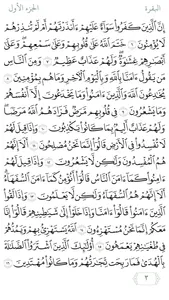 البقرة الجزء الأول
إِنَّ الَّذِينَ كَفَرُوا سَوَاءٌ عَلَيْهِمْ ءَأَنذَرْتَهُمْ أَمْ لَمْ تُنذِرْهُمْ
لَا يُؤْمِنُونَ ٦ خَتَمَ اللَّهُ عَلَىٰ قُلُوبِهِمْ وَعَلَىٰ سَمْعِهِمْ وَعَلَىٰ
أَبْصَارِهِمْ غِشَاوَةٌ وَلَهُمْ عَذَابٌ عَظِيمٌ ٧ وَمِنَ النَّاسِ
مَن يَقُولُ ءَامَنَّا بِاللَّهِ وَبِالْيَوْمِ الْآخِرِ وَمَا هُم بِمُؤْمِنِينَ ٨
يُخَادِعُونَ اللَّهَ وَالَّذِينَ ءَامَنُوا وَمَا يَخْدَعُونَ إِلَّا أَنفُسَهُمْ
وَمَا يَشْعُرُونَ ٩ فِي قُلُوبِهِم مَّرَضٌ فَزَادَهُمُ اللَّهُ مَرَضًا
وَلَهُمْ عَذَابٌ أَلِيمٌ بِمَا كَانُوا يَكْذِبُونَ ١٠ وَإِذَا قِيلَ لَهُمْ
لَا تُفْسِدُوا فِي الْأَرْضِ قَالُوا إِنَّمَا نَحْنُ مُصْلِحُونَ ١١ أَلَا إِنَّهُمْ
هُمُ الْمُفْسِدُونَ وَلَٰكِن لَّا يَشْعُرُونَ ١٢ وَإِذَا قِيلَ لَهُمْ
ءَامِنُوا كَمَا ءَامَنَ النَّاسُ قَالُوا أَنُؤْمِنُ كَمَا ءَامَنَ السُّفَهَاءُ
أَلَا إِنَّهُمْ هُمُ السُّفَهَاءُ وَلَٰكِن لَّا يَعْلَمُونَ ١٣ وَإِذَا لَقُوا
الَّذِينَ ءَامَنُوا قَالُوا ءَامَنَّا وَإِذَا خَلَوْا إِلَىٰ شَيَاطِينِهِمْ قَالُوا
إِنَّا مَعَكُمْ إِنَّمَا نَحْنُ مُسْتَهْزِءُونَ ١٤ اللَّهُ يَسْتَهْزِئُ بِهِمْ وَيَمُدُّهُمْ
فِي طُغْيَانِهِمْ يَعْمَهُونَ ١٥ أُولَٰئِكَ الَّذِينَ اشْتَرَوُا الضَّلَالَةَ
بِالْهُدَىٰ فَمَا رَبِحَت تِّجَارَتُهُمْ وَمَا كَانُوا مُهْتَدِينَ ١٦
٣